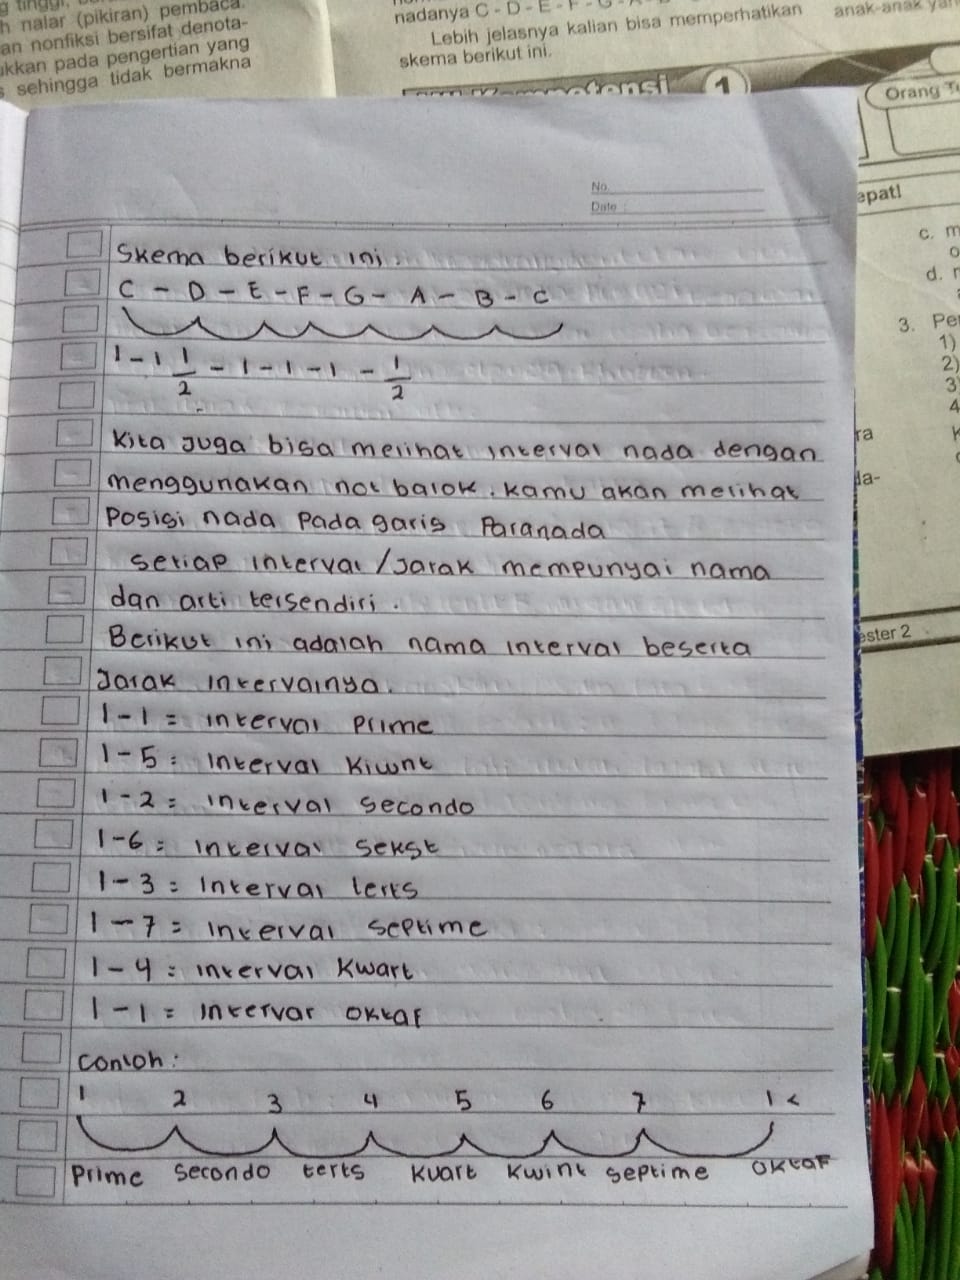 g tinggi,
h nalar (pikiran) pembaca.
an nonfiksi bersifat denota-
ukkan pada pengertian yang
s sehingga tidak bermakna
nadanya C - D - E - F - G - A -
Lebih jelasnya kalian bisa memperhatikan
skema berikut ini.
anak-anak yan
1
Orang T
epat!
c. m
o
d. r
3. Per
1)
2)
3
4
ra
k
da-
ester 2
No.
Date :
Skema berikut ini.
C - D - E - F - G - A - B - C
1 - 1 1/2 - 1 - 1 - 1 - 1/2
Kita Juga bisa melihat interval nada dengan
menggunakan not balok. kamu akan melihat
Posisi nada Pada garis Paranada
setiap interval/Jarak mempunyai nama
dan arti tersendiri.
Berikut ini adalah nama interval beserta
Jarak intervalnya.
1 - 1 = interval Prime
1 - 5 = interval Kiwnt
1 - 2 = interval secondo
1 - 6 = interval sekst
1 - 3 = interval terts
1 - 7 = interval septime
1 - 4 = interval Kwart
1 - 1 = intervar oktaf
contoh :
1 2 3 4 5 6 7 1 <
Prime secondo terts Kuart Kwint septime oktaf